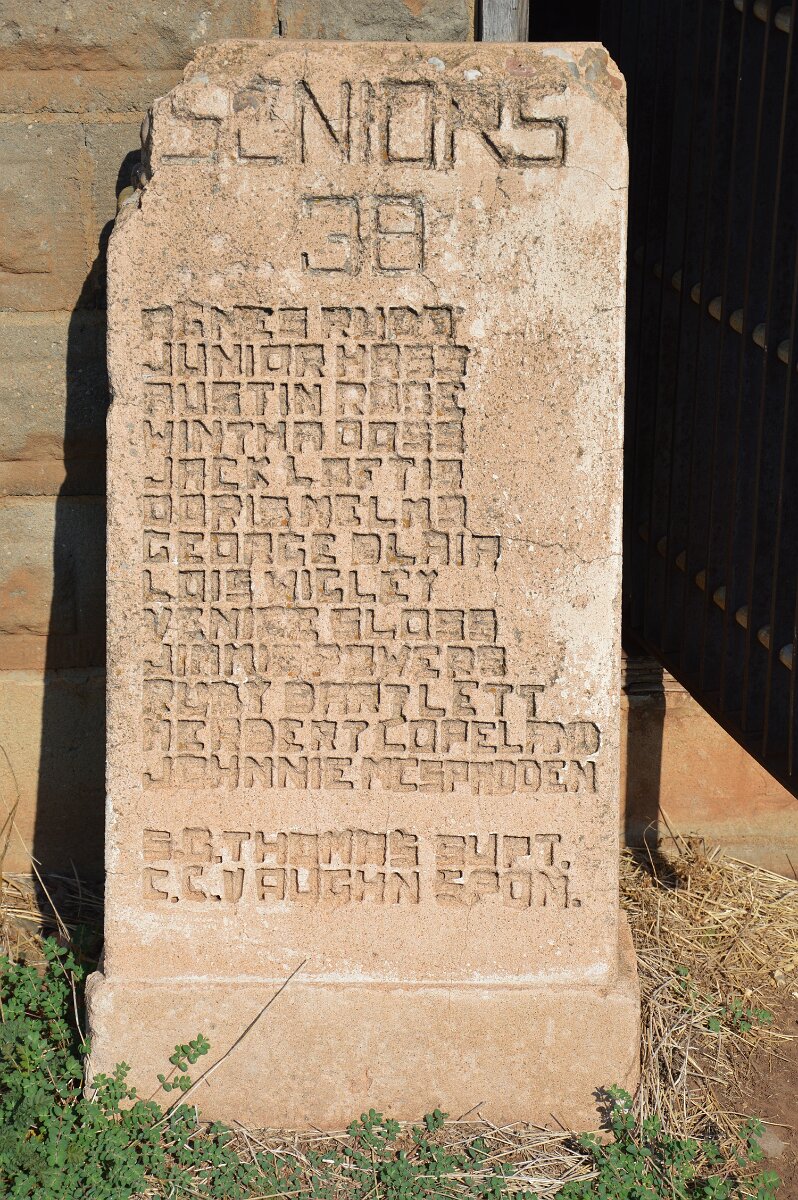 SENIORS
38
AGNES RUDD
JUNIOR HASS
AUSTIN ROSE
WINTHA DOSS
JACK LAFTIS
DORIS MELMA
GEORGE BLAIR
LOIS WIGLEY
VENICE GLOSS
JIMMIE POWERS
RUBY BARTLETT
HERBERT COPELAND
JOHNNIE MCSPADDEN
S.G. THOMAS SUPT.
C.C. VAUGHN SPON.